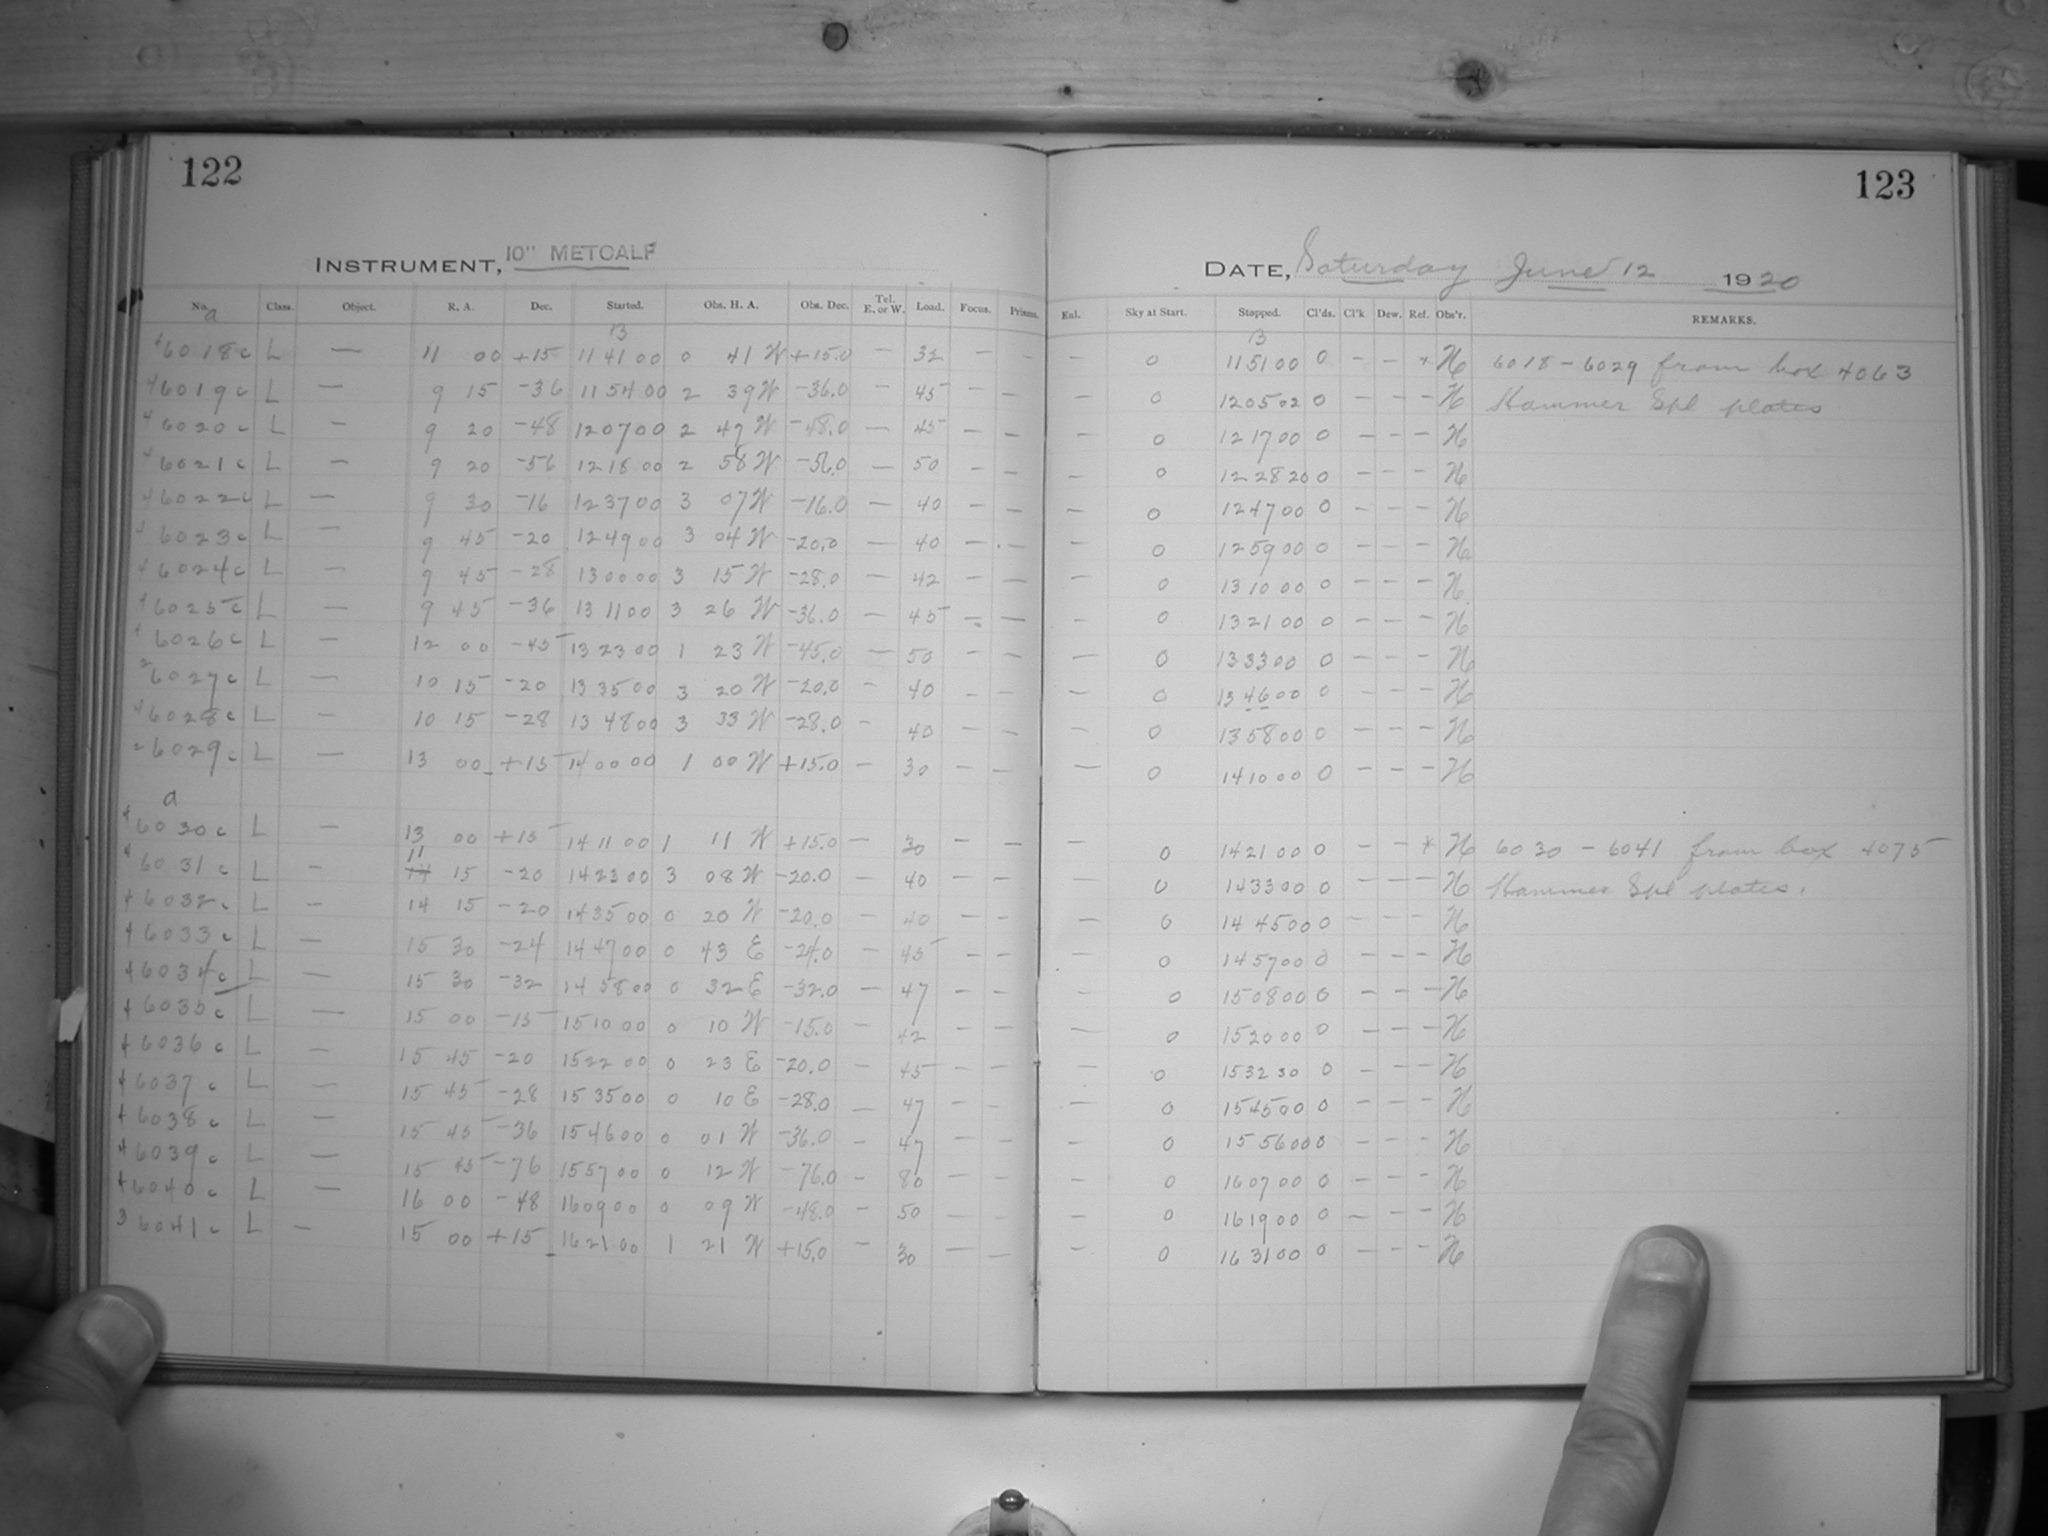 122
123
INSTRUMENT, 10" METCALF
DATE, Saturday June 12 1920
No. Class. Object. R. A. Dec. Started. Obs. H. A. Obs. Dec. Tel. E. or W. Load. Focus. Prisms. Enl. Sky at Start. Stopped. Cl'ds. Cl'k Dew. Ref. Obs'r. REMARKS.
a B B
4 6018c L — 11 00 +15 11 41 00 0 41 W +15.0 — 32 — — — 0 11 51 00 0 — — * H 6018 - 6029 from box 4063
4 6019c L — 9 15 -36 11 54 00 2 39 W -36.0 — 45 — — — 0 12 05 02 0 — — — H Hammer Spl plates
4 6020c L — 9 20 -48 12 07 00 2 47 W -48.0 — 45 — — — 0 12 17 00 0 — — — H
4 6021c L — 9 20 -56 12 18 00 2 58 W -56.0 — 50 — — — 0 12 28 20 0 — — — H
4 6022c L — 9 30 -16 12 37 00 3 07 W -16.0 — 40 — — — 0 12 47 00 0 — — — H
6023c L — 9 45 -20 12 49 00 3 04 W -20.0 — 40 — — — 0 12 59 00 0 — — — H
4 6024c L — 9 45 -28 13 00 00 3 15 W -28.0 — 42 — — — 0 13 10 00 0 — — — H
4 6025c L — 9 45 -36 13 11 00 3 26 W -36.0 — 45 — — — 0 13 21 00 0 — — — H
6026c L — 12 00 -45 13 23 00 1 23 W -45.0 — 50 — — — 0 13 33 00 0 — — — H
2 6027c L — 10 15 -20 13 35 00 3 20 W -20.0 — 40 — — — 0 13 46 00 0 — — — H
4 6028c L — 10 15 -28 13 48 00 3 33 W -28.0 — 40 — — — 0 13 58 00 0 — — — H
2 6029c L — 13 00 +15 14 00 00 1 00 W +15.0 — 30 — — — 0 14 10 00 0 — — — H
a
4 6030c L — 13 00 +15 14 11 00 1 11 W +15.0 — 30 — — — 0 14 21 00 0 — — * H 6030 - 6041 from box 4075
4 6031c L — 11 15 -20 14 23 00 3 08 W -20.0 — 40 — — 0 14 33 00 0 — — — H Hammer Spl plates.
4 6032c L — 14 15 -20 14 35 00 0 20 W -20.0 — 40 — — — 0 14 45 00 0 — — — H
4 6033c L — 15 30 -24 14 47 00 0 43 E -24.0 — 45 — — — 0 14 57 00 0 — — — H
4 6034c L — 15 30 -32 14 58 00 0 32 E -32.0 — 47 — — — 0 15 08 00 0 — — — H
4 6035c L — 15 00 -15 15 10 00 0 10 W -15.0 — 42 — — — 0 15 20 00 0 — — — H
4 6036c L — 15 45 -20 15 22 00 0 23 E -20.0 — 45 — — — 0 15 32 30 0 — — — H
4 6037c L — 15 45 -28 15 35 00 0 10 E -28.0 — 47 — — — 0 15 45 00 0 — — — H
4 6038c L — 15 45 -36 15 46 00 0 01 W -36.0 — 47 — — — 0 15 56 00 0 — — — H
4 6039c L — 15 45 -76 15 57 00 0 12 W -76.0 — 80 — — — 0 16 07 00 0 — — — H
4 6040c L — 16 00 -48 16 09 00 0 09 W -48.0 — 50 — — — 0 16 19 00 0 — — — H
3 6041c L — 15 00 +15 16 21 00 1 21 W +15.0 — 30 — — — 0 16 31 00 0 — — — H